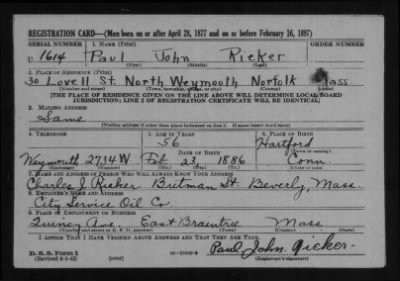 REGISTRATION CARD—(Men born on or after April 28, 1877 and on or before February 16, 1897)
SERIAL NUMBER 1. NAME (Print) ORDER NUMBER
U 1614 Paul John Ricker
(First) (Middle) (Last)
2. PLACE OF RESIDENCE (Print)
30 Lovell St. North Weymouth Norfolk Mass
(Number and street) (Town, township, village, or city) (County) (State)
[THE PLACE OF RESIDENCE GIVEN ON THE LINE ABOVE WILL DETERMINE LOCAL BOARD
JURISDICTION; LINE 2 OF REGISTRATION CERTIFICATE WILL BE IDENTICAL]
3. MAILING ADDRESS
Same
[Mailing address if other than place indicated on line 2. If same insert word same]
4. TELEPHONE 5. AGE IN YEARS 6. PLACE OF BIRTH
56 Hartford
DATE OF BIRTH (Town or county)
Weymouth 2734W Feb 23 1886 Conn.
(Exchange) (Number) (Mo.) (Day) (Yr.) (State or country)
7. NAME AND ADDRESS OF PERSON WHO WILL ALWAYS KNOW YOUR ADDRESS
Charles J. Ricker St. Beverly, Mass.
8. EMPLOYER'S NAME AND ADDRESS
City Service Oil Co.
9. PLACE OF EMPLOYMENT OR BUSINESS
Quincy Ave. East Braintree Mass
(Number and street or R. F. D. number) (Town) (County) (State)
I AFFIRM THAT I HAVE VERIFIED ABOVE ANSWERS AND THAT THEY ARE TRUE.
Paul John Ricker.
D. S. S. Form 1
(Revised 4-1-42) (over) (Registrant's signature)